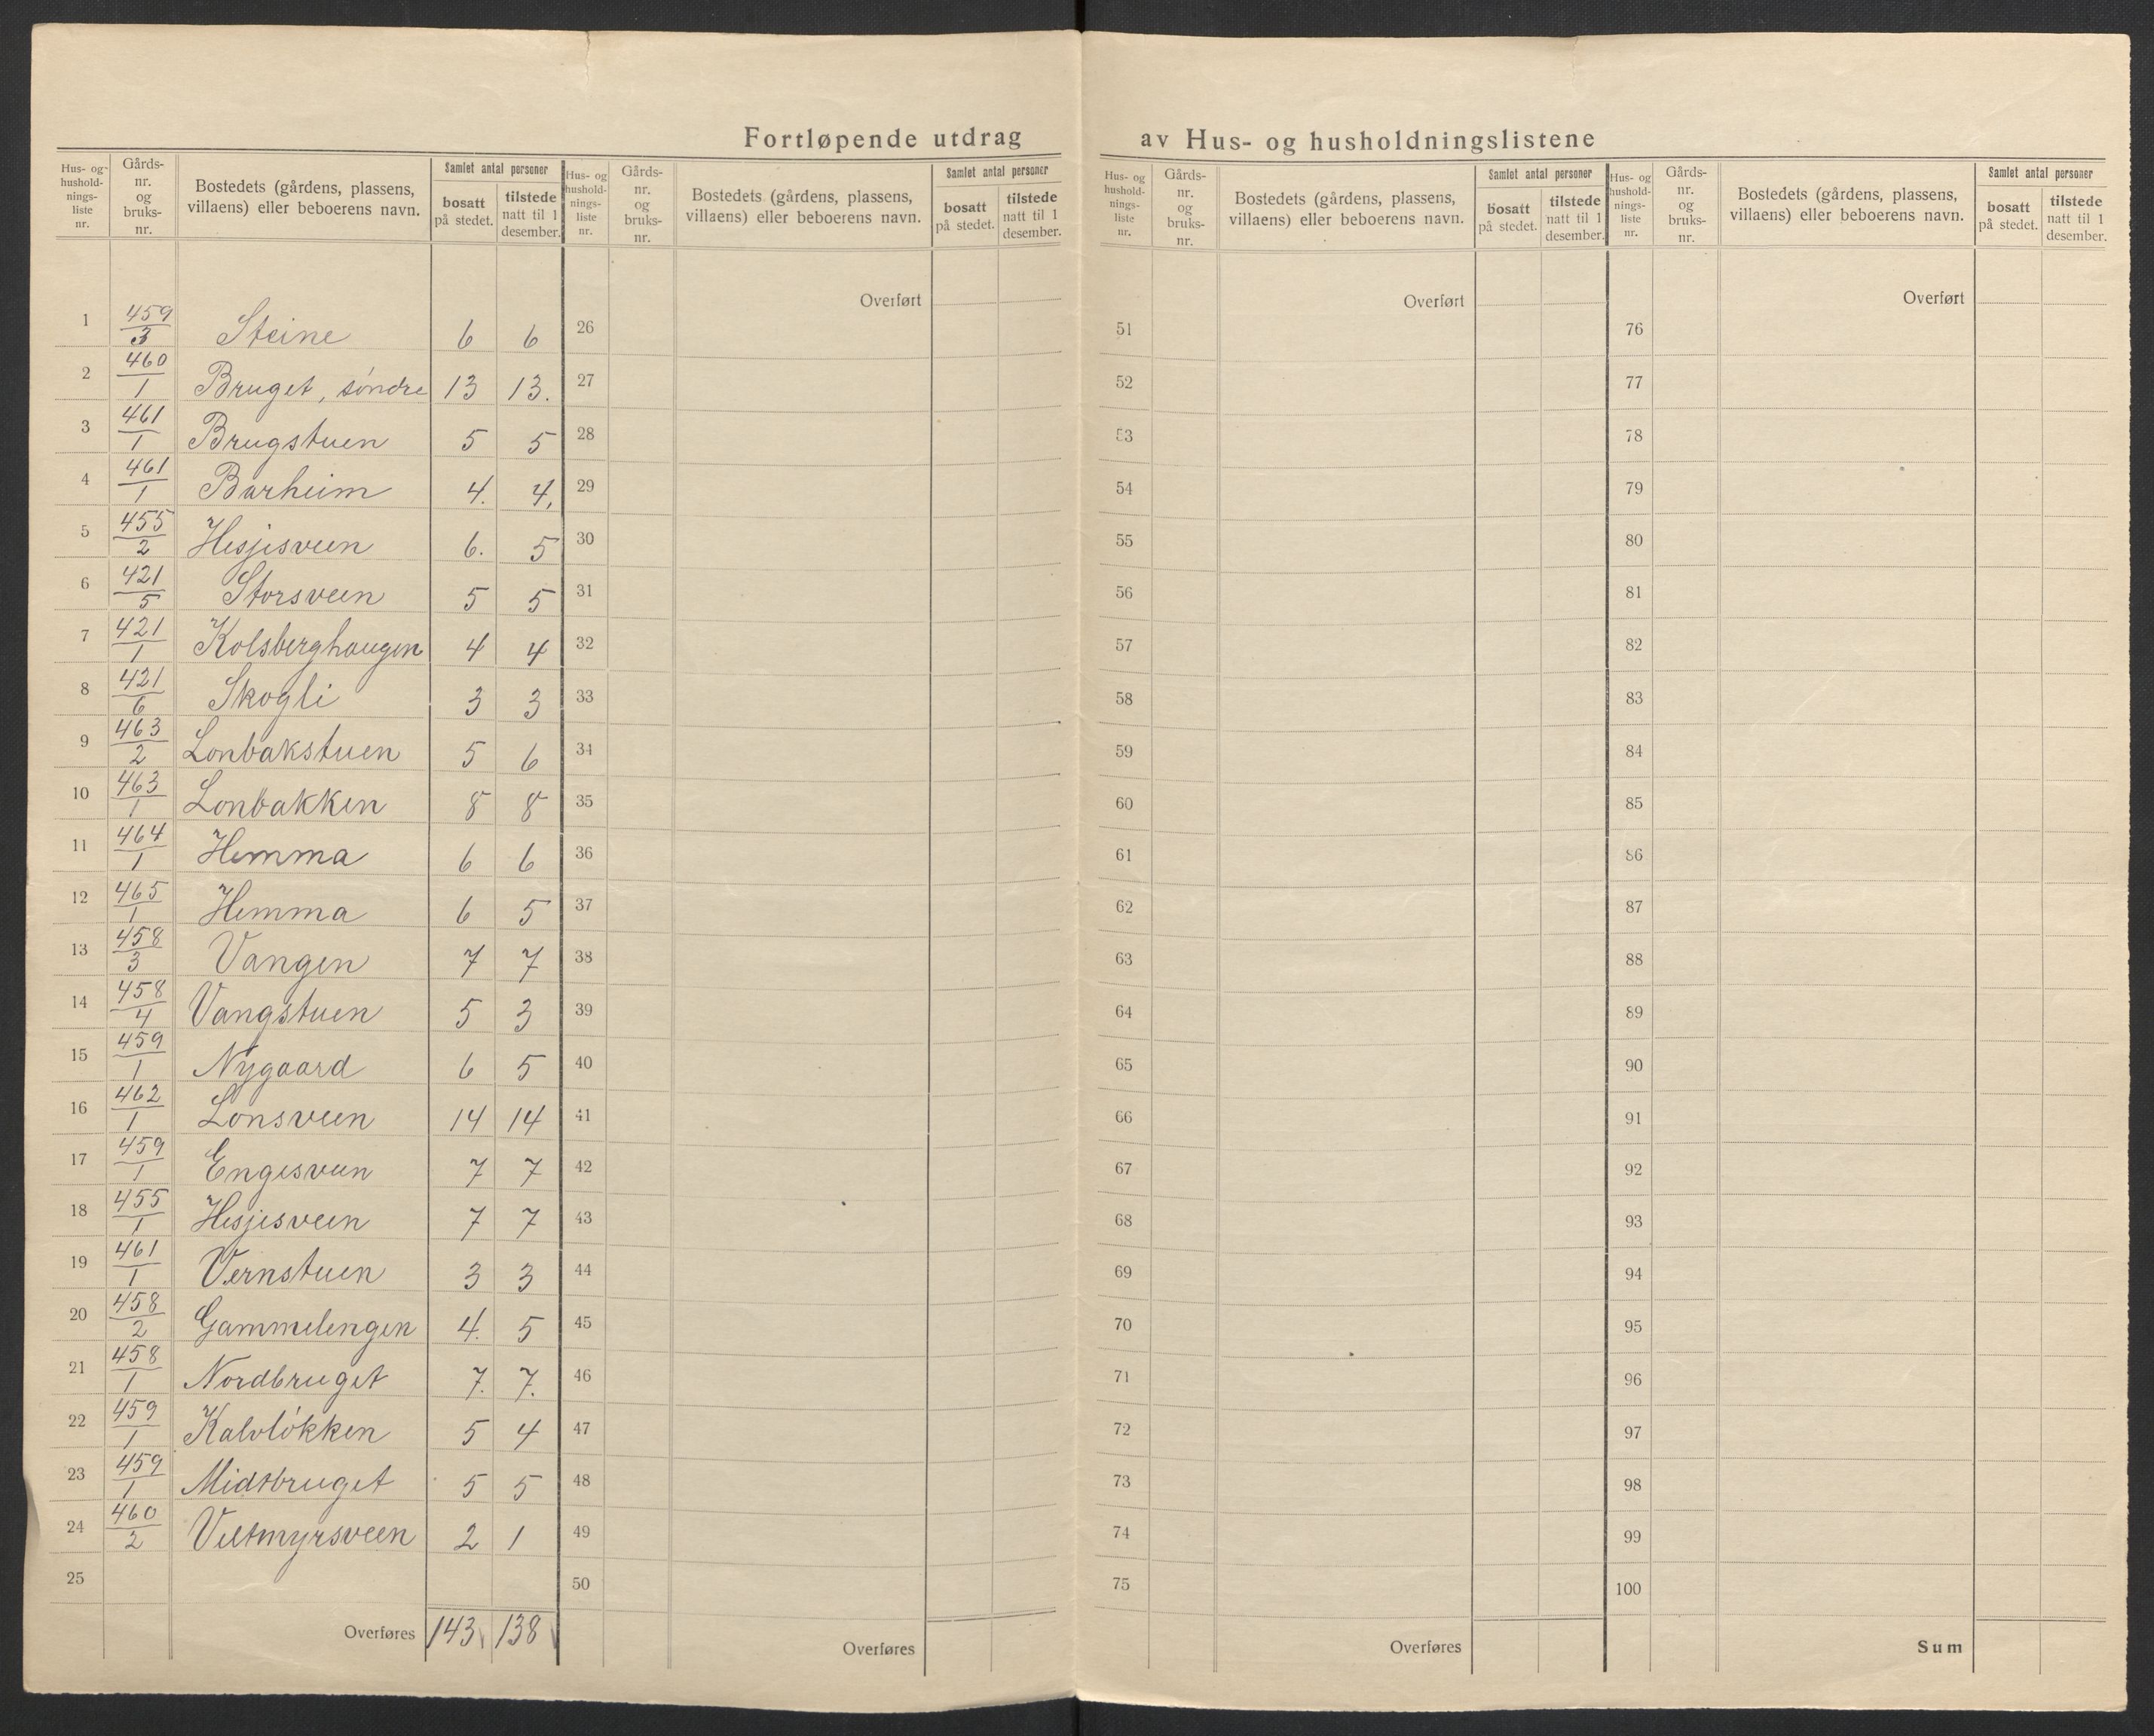 Fortløpende utdrag av Hus- og husholdningslistene
Hus- og hushold- nings- liste nr. | Gårds- nr. og bruks- nr. | Bostedets (gårdens, plassens, villaens) eller beboerens navn. | Samlet antal personer | bosatt på stedet. | tilstede natt til 1 desember.
Hus- og hushold- nings- liste nr. | Gårds- nr. og bruks- nr. | Bostedets (gårdens, plassens, villaens) eller beboerens navn. | Samlet antal personer | bosatt på stedet. | tilstede natt til 1 desember.
Hus- og hushold- nings- liste nr. | Gårds- nr. og bruks- nr. | Bostedets (gårdens, plassens, villaens) eller beboerens navn. | Samlet antal personer | bosatt på stedet. | tilstede natt til 1 desember.
Hus- og hushold- nings- liste nr. | Gårds- nr. og bruks- nr. | Bostedets (gårdens, plassens, villaens) eller beboerens navn. | Samlet antal personer | bosatt på stedet. | tilstede natt til 1 desember.
Overført Overført Overført
1 459/3 Steine 6 6 26 51 76
2 460/1 Bruget, søndre 13 13. 27 52 77
3 461/1 Brugstuen 5 5 28 53 78
4 461/1 Barheim 4. 4, 29 54 79
5 455/2 Hesjesveen 6. 5 30 55 80
6 421/5 Storsveen 5 5 31 56 81
7 421/1 Kolsberghaugen 4 4 32 57 82
8 421/6 Skogli 3 3 33 58 83
9 463/2 Lonbakstuen 5 6 34 59 84
10 463/1 Lonbakken 8 8 35 60 85
11 464/1 Hemma 6 6 36 61 86
12 465/1 Hemma 6 5 37 62 87
13 458/3 Vangen 7 7 38 63 88
14 458/4 Vangstuen 5 3 39 64 89
15 459/1 Nygaard 6 5 40 65 90
16 462/1 Lonsveen 14 14 41 66 91
17 459/1 Engesveen 7 7 42 67 92
18 455/1 Hesjesveen 7 7 43 68 93
19 461/1 Vernstuen 3 3 44 69 94
20 458/2 Gammelengen 4. 5 45 70 95
21 458/1 Nordbruget 7. 7. 46 71 96
22 459/1 Kalvløkken 5 4 47 72 97
23 459/1 Midtbruget 5 5 48 73 98
24 460/2 Veltmyrsveen 2 1 49 74 99
25 50 75 100
Overføres 143 138 Overføres Overføres Sum